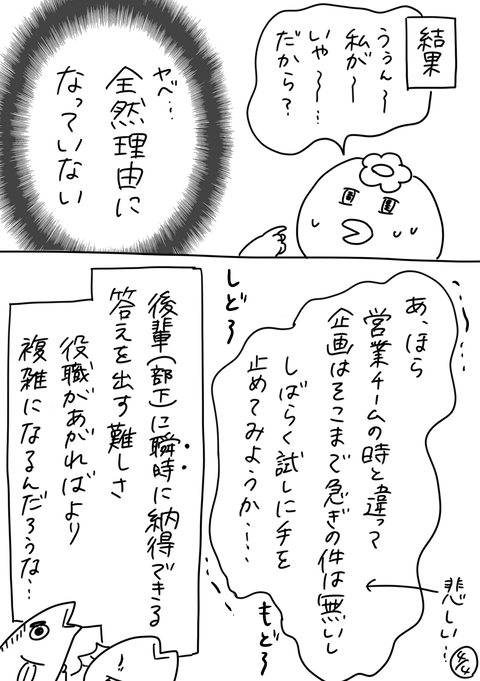 結果
ううん〜
私が〜
いや〜〜…
だから？
ヤベ…
全然理由に
なっていない
あ、ほら
営業チームの時と違って
企画はそこまで急ぎの件は無いし
しばらく試しに手を
止めてみようか…
しどろ
もどろ
悲しい…
後輩(部下)に瞬時に納得できる
答えを出す難しさ
役職があがればより
複雑になるんだろうな…
4/4